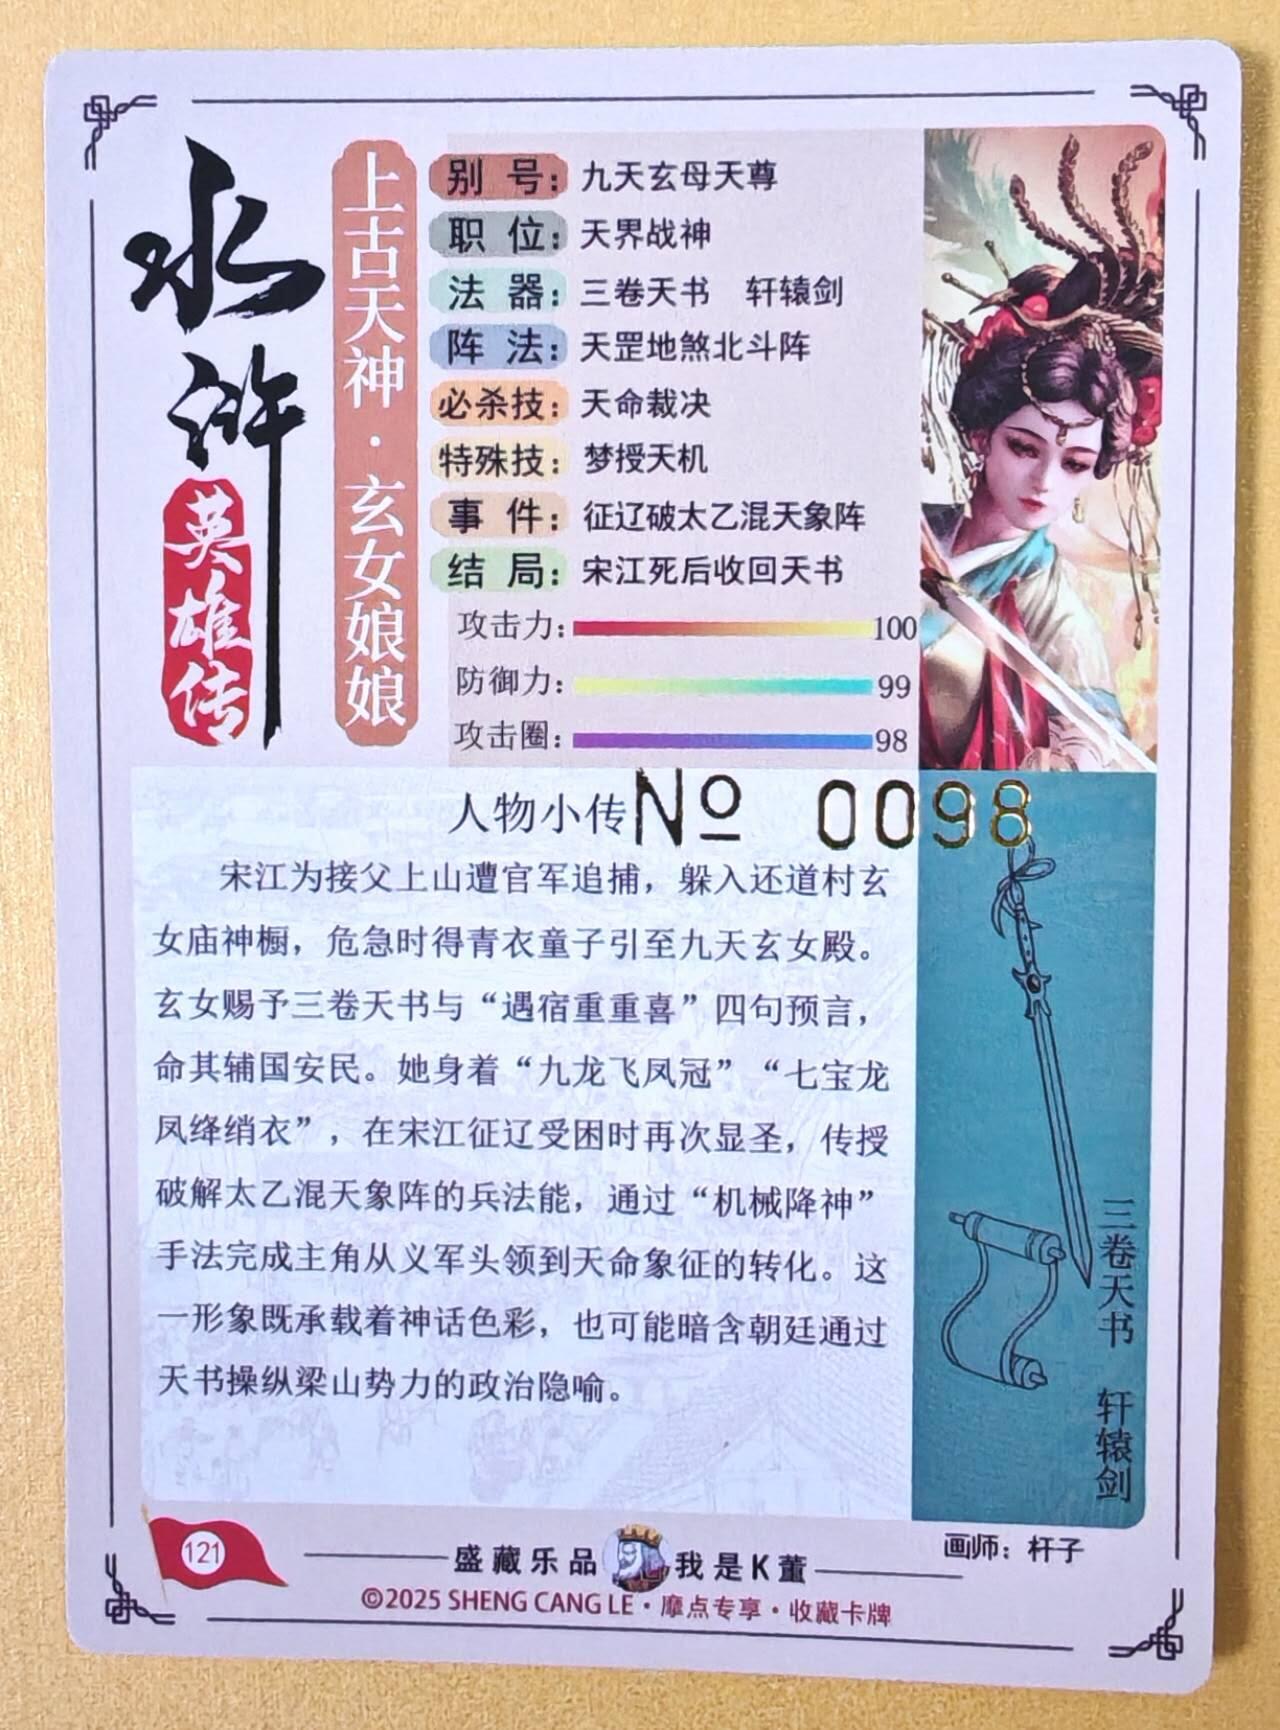 水浒
英雄传
上古天神·玄女娘娘
别号：九天玄母天尊
职位：天界战神
法器：三卷天书 轩辕剑
阵法：天罡地煞北斗阵
必杀技：天命裁决
特殊技：梦授天机
事件：征辽破太乙混天象阵
结局：宋江死后收回天书
攻击力：100
防御力：99
攻击圈：98
人物小传
No 0098
宋江为接父上山遭官军追捕，躲入还道村玄
女庙神橱，危急时得青衣童子引至九天玄女殿。
玄女赐予三卷天书与“遇宿重重喜”四句预言，
命其辅国安民。她身着“九龙飞凤冠”“七宝龙
凤绛绡衣”，在宋江征辽受困时再次显圣，传授
破解太乙混天象阵的兵法能，通过“机械降神”
手法完成主角从义军头领到天命象征的转化。这
一形象既承载着神话色彩，也可能暗含朝廷通过
天书操纵梁山势力的政治隐喻。
三卷天书 轩辕剑
画师：杆子
121
盛藏乐品 我是K董
©2025 SHENG CANG LE·摩点专享·收藏卡牌